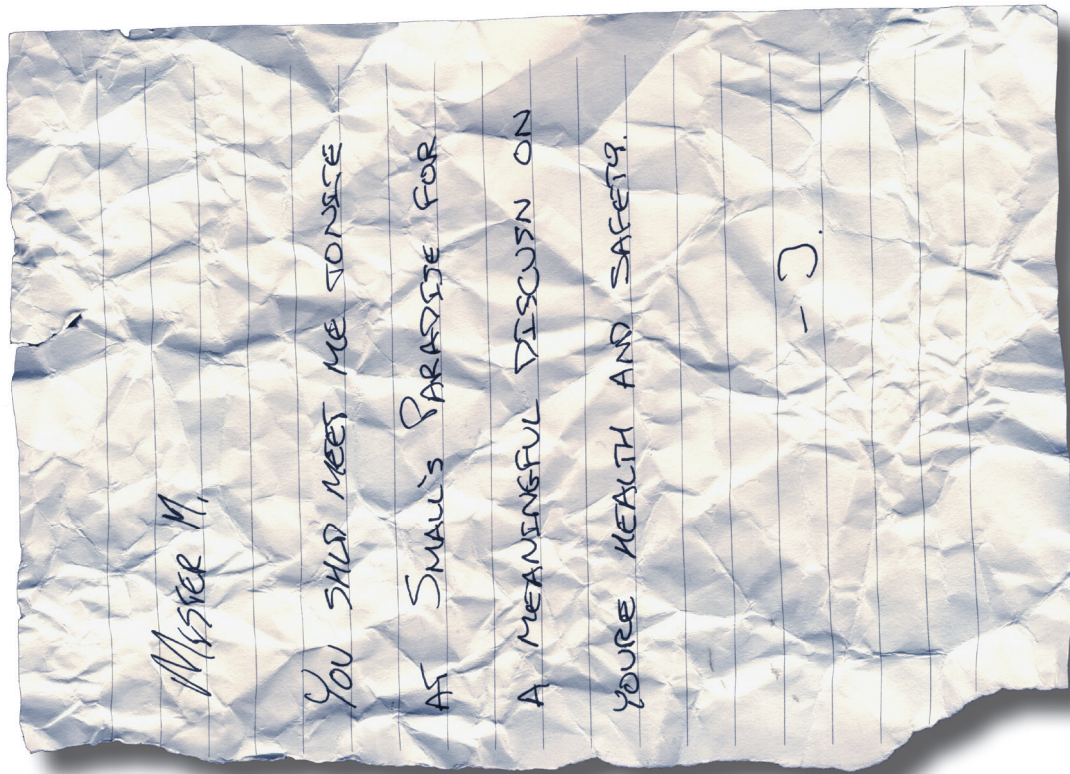 MISTER M.
YOU SHLD MEET ME TONITE
AT SMALL'S PARADISE FOR
A MEANINGFUL DISCUSN ON
YOURE HEALTH AND SAFETY.
– J.